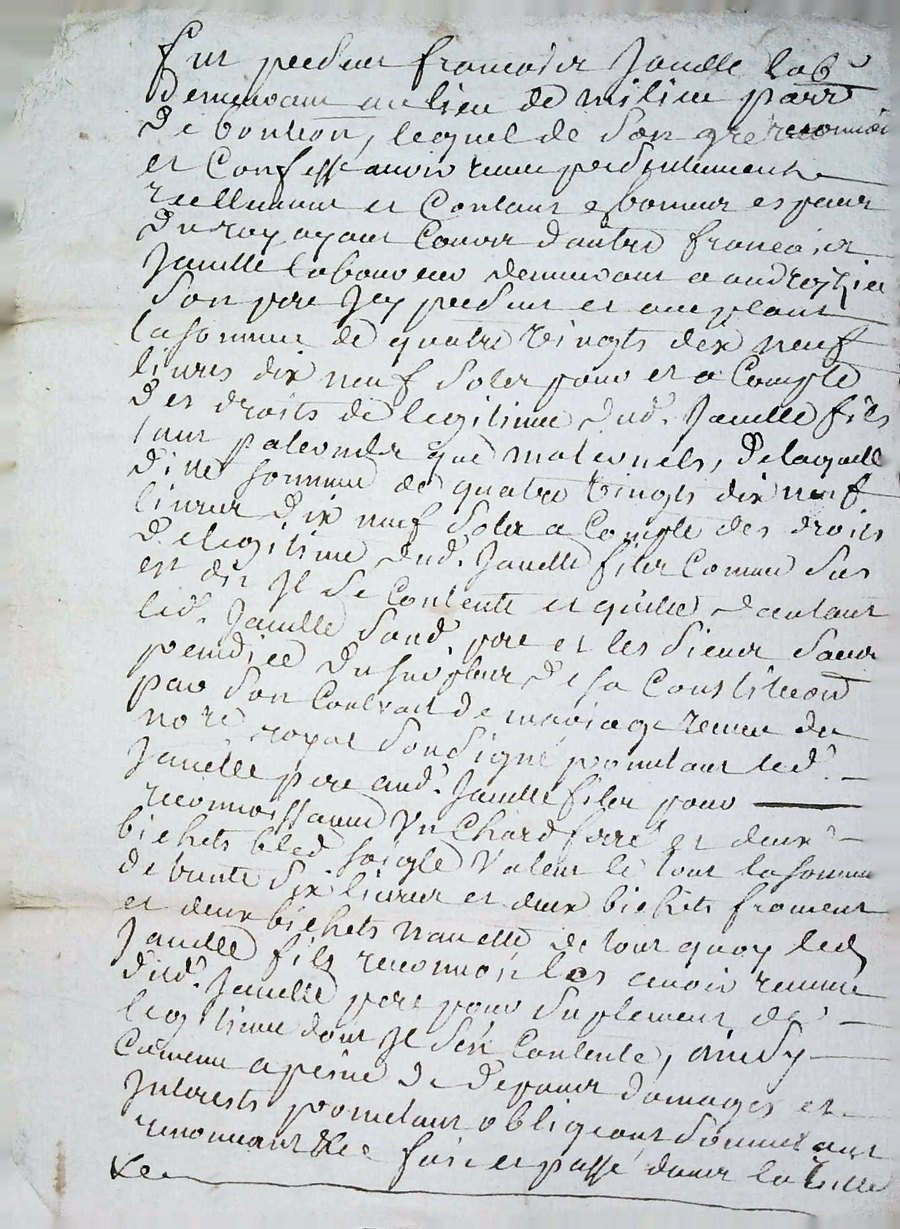 fut present francois Janelle lab.r
demeurant au lieu de milieu parr.
de
et Confesse avoir receu presentement
reellement et Contant e bonnes especes
du roy ayant Cours d'autre francois
Janelle laboureur demeurant a
Son pere Icy present et acceptant
la somme de quatre vingts dix neuf
livres dix neuf Soler pour et a Compte
des droits de legitime dud. Janelle fils
tant paternels que maternels, de laquelle
ditte somme de quatre vingts dix neuf
livres dix neuf Soler a Compte des droits
de legitime dud. Janelle filer Comme Sus
est dit Il se Contente et quitte d'autant
led. Janelle Sond. pere et les Siens Sans
prejudice du surplus de sa Constitution
par Son Contrait de mariage receu du
no.re royal Soussigné promettant led.
Janelle pere aud. Janelle filer pour
reconnoissance Un Chard ferré et deux
bichets bled soigle Valeur le tout la somme
de trente Six livres et deux bichets froment
et deux bichets navette de tout quoy led
Janelle fils reconnoit les avoir receue
dud. Janelle pere pour Suplement de
legitime dont Il s'en Contente, ainsy
Comme a peine de depens domages et
Interests promettant obligeant Soumettant
renonceant &c fait et passé dans la Ville
&c